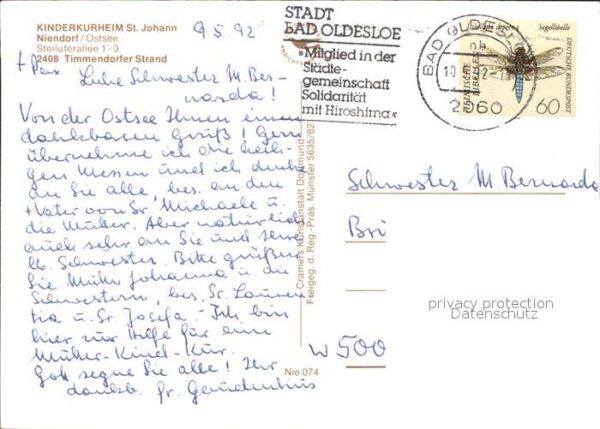 KINDERKURHEIM St. Johann
Niendorf / Ostsee
Steiluferallee 1-3
2408 Timmendorfer Strand
9.5.92
+ Pax Liebe Schwester M. Ber-
narda!
Von der Ostsee Ihnen einen
dankbaren Gruß! Gern
übernehme ich die heili-
gen Messen und ich denke
an Sie alle, bes. an den
+ Vater von Sr. Michaele u.
die Mutter. Aber natürlich
auch sehr an Sie und Ihre
lb. Schwester. Bitte grüßen
Sie Mutter Johanna u. die
Schwestern, bes. Sr. Lauren-
tia u. Sr. Josefa. - Ich bin
hier zur Hilfe für eine
Mutter-Kind-Kur.
Gott segne Sie alle! Ihr
dankb. fr. Gaudentius
STADT
BAD OLDESLOE
»Mitglied in der
Städte-
gemeinschaft
Solidarität
mit Hiroshima«
BAD OLDESLOE
2060
Segellibelle
DEUTSCHE BUNDESPOST
60
Cramers Kunstanstalt Dortmund
Freigeg. d. Reg.-Präs. Münster 5635/82
Nie 074
Schwester M. Bernarda
Bri
W 500
privacy protection
Datenschutz